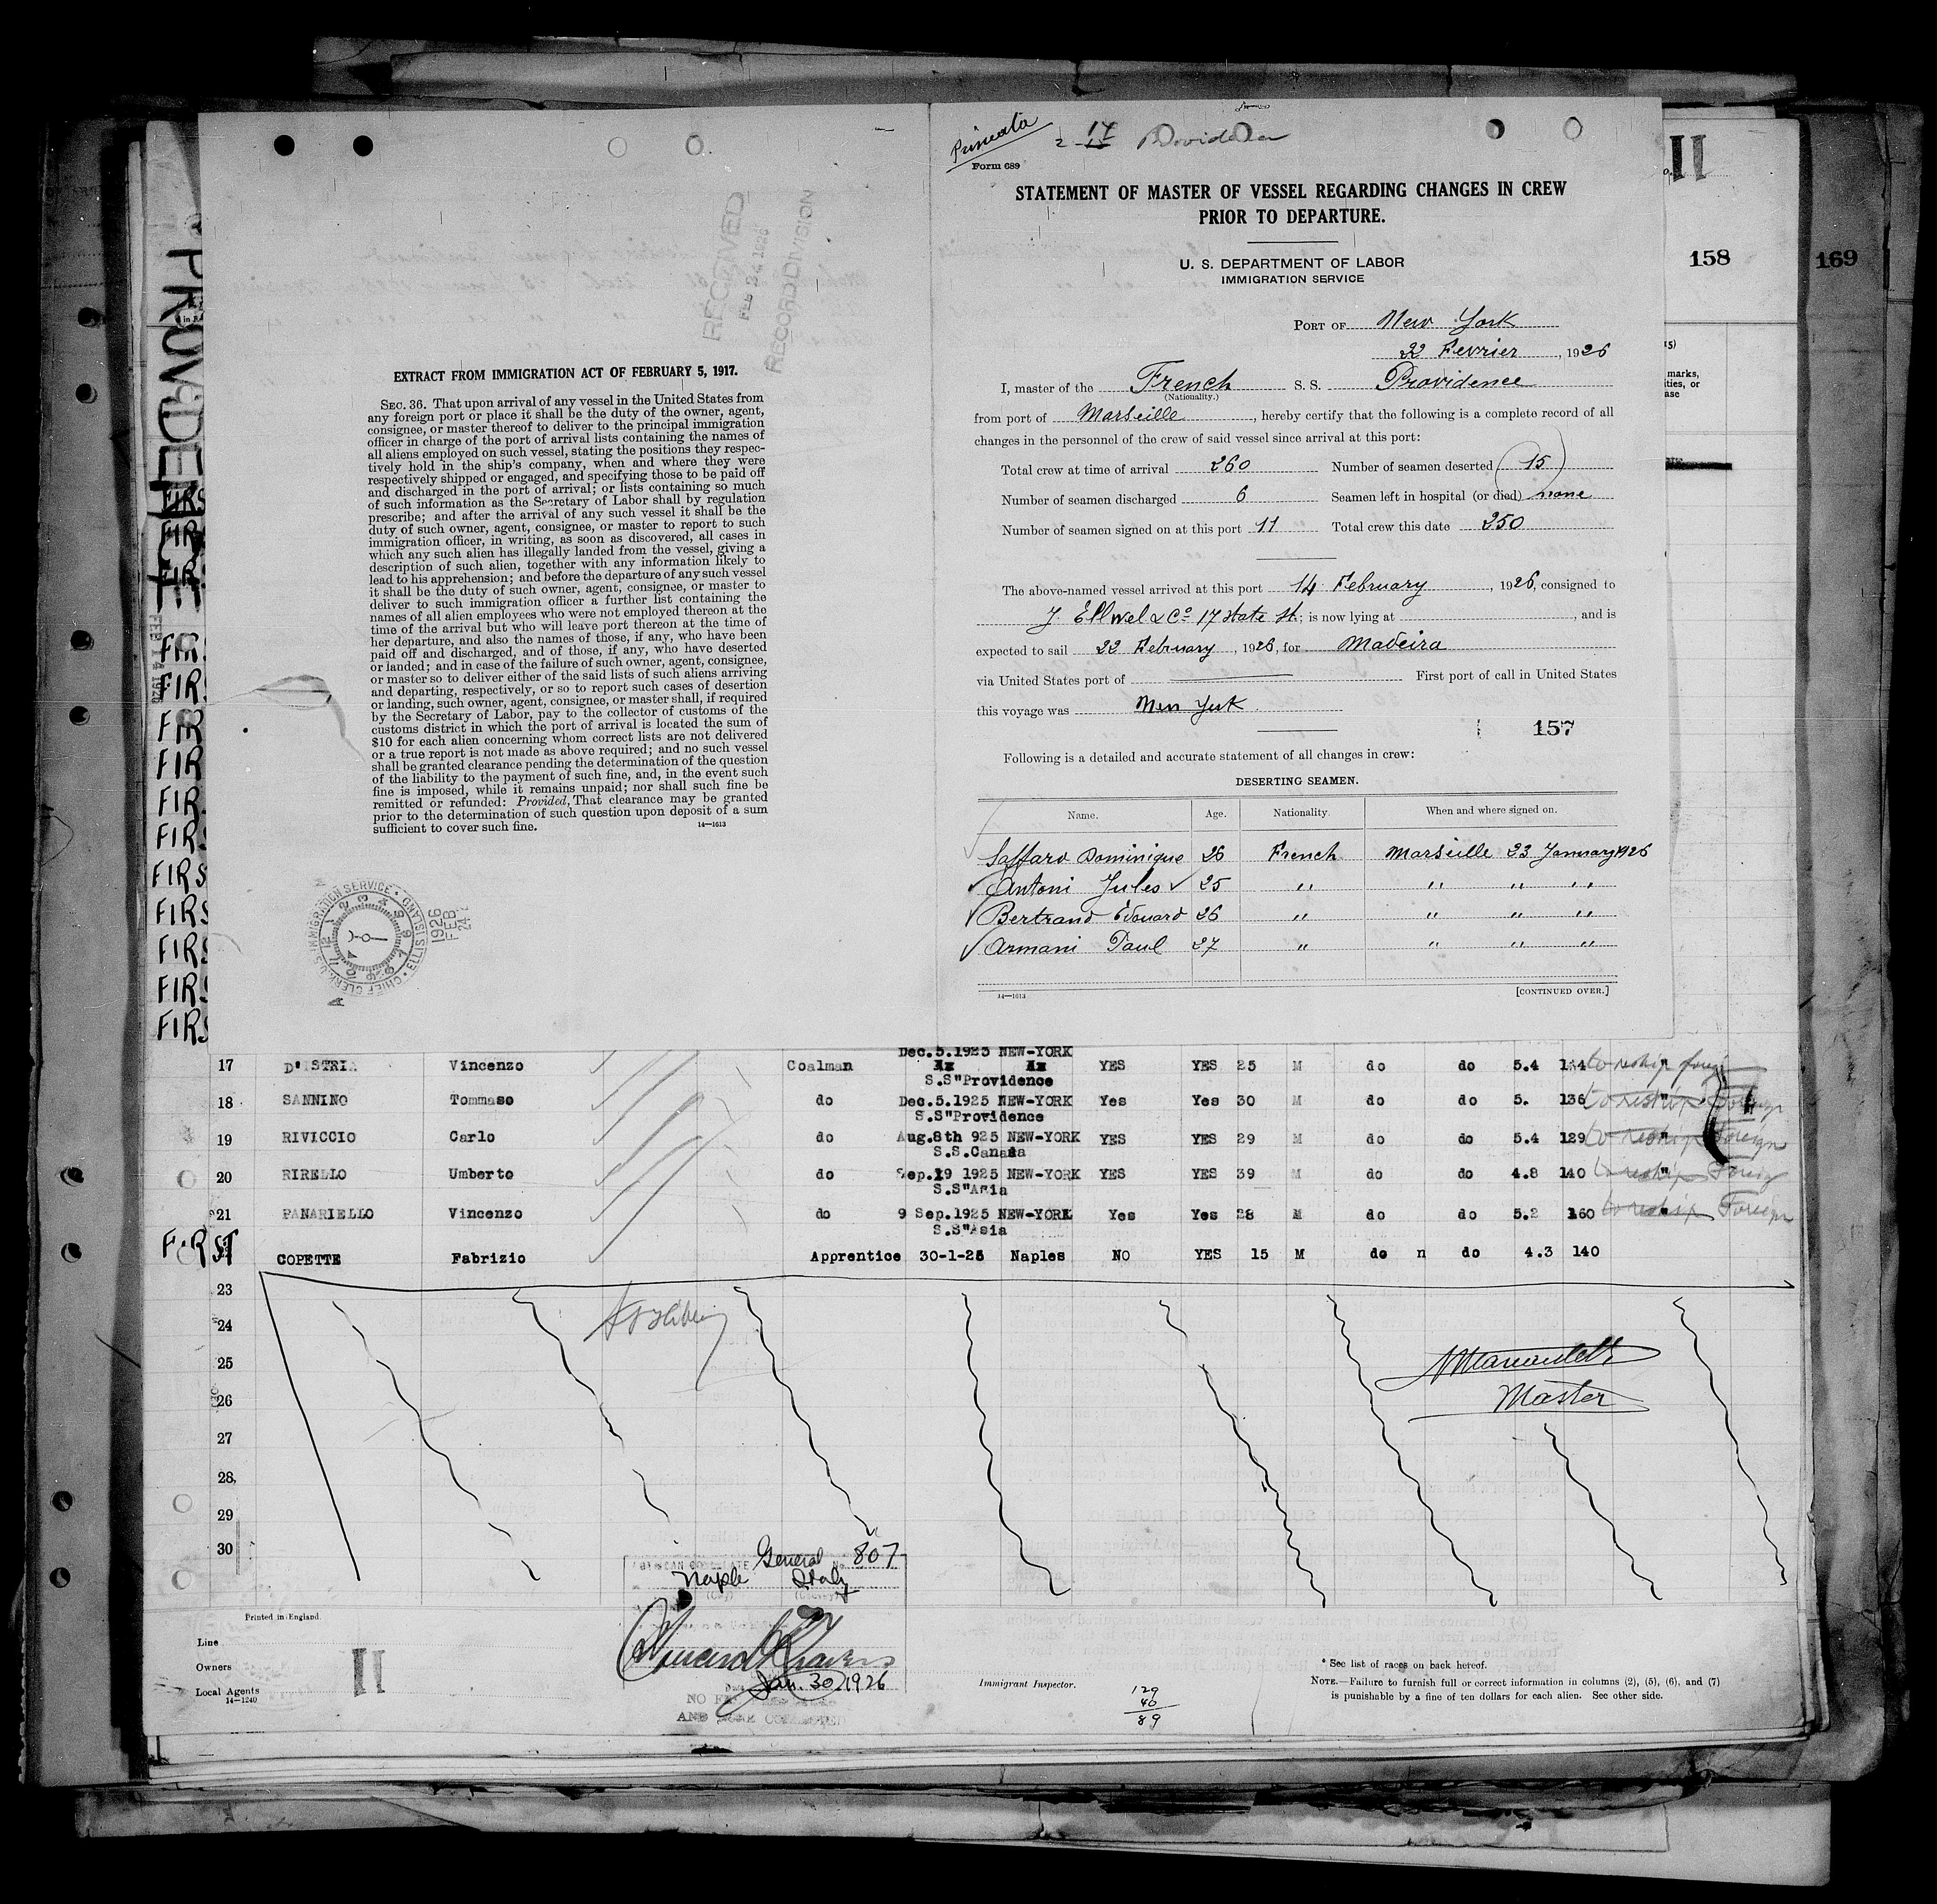 PROVIDENCE
RECEIVED
FEB 24 1926
RECORD DIVISION
EXTRACT FROM IMMIGRATION ACT OF FEBRUARY 5, 1917.
SEC. 36. That upon arrival of any vessel in the United States from
any foreign port or place it shall be the duty of the owner, agent,
consignee, or master thereof to deliver to the principal immigration
officer in charge of the port of arrival lists containing the names of
all aliens employed on such vessel, stating the positions they respec-
tively hold in the ship's company, when and where they were
respectively shipped or engaged, and specifying those to be paid off
and discharged in the port of arrival; or lists containing so much
of such information as the Secretary of Labor shall by regulation
prescribe; and after the arrival of any such vessel it shall be the
duty of such owner, agent, consignee, or master to report to such
immigration officer, in writing, as soon as discovered, all cases in
which any such alien has illegally landed from the vessel, giving a
description of such alien, together with any information likely to
lead to his apprehension; and before the departure of any such vessel
it shall be the duty of such owner, agent, consignee, or master to
deliver to such immigration officer a further list containing the
names of all alien employees who were not employed thereon at the
time of the arrival but who will leave port thereon at the time of
her departure, and also the names of those, if any, who have been
paid off and discharged, and of those, if any, who have deserted
or landed; and in case of the failure of such owner, agent, consignee,
or master so to deliver either of the said lists of such aliens arriving
and departing, respectively, or so to report such cases of desertion
or landing, such owner, agent, consignee, or master shall, if required
by the Secretary of Labor, pay to the collector of customs of the
customs district in which the port of arrival is located the sum of
$10 for each alien concerning whom correct lists are not delivered
or a true report is not made as above required; and no such vessel
shall be granted clearance pending the determination of the question
of the liability to the payment of such fine, and, in the event such
fine is imposed, while it remains unpaid; nor shall such fine be
remitted or refunded: Provided, That clearance may be granted
prior to the determination of such question upon deposit of a sum
sufficient to cover such fine.
14—1613
CHIEF CLERK U.S. IMMIGRATION SERVICE • ELLIS ISLAND •
1926 FEB 24
Form 689
STATEMENT OF MASTER OF VESSEL REGARDING CHANGES IN CREW
PRIOR TO DEPARTURE.
U. S. DEPARTMENT OF LABOR
IMMIGRATION SERVICE
PORT OF New York
22 Fevrier, 1926
I, master of the French S. S. Providence
(Nationality.)
from port of Marseille, hereby certify that the following is a complete record of all
changes in the personnel of the crew of said vessel since arrival at this port:
Total crew at time of arrival 260 Number of seamen deserted (15)
Number of seamen discharged 6 Seamen left in hospital (or died) none
Number of seamen signed on at this port 11 Total crew this date 250
The above-named vessel arrived at this port 14 February, 1926, consigned to
J. Ellwel & Co 17 State St; is now lying at , and is
expected to sail 22 February, 1926, for Madeira
via United States port of First port of call in United States
this voyage was New York
157
Following is a detailed and accurate statement of all changes in crew:
DESERTING SEAMEN.
Name. Age. Nationality. When and where signed on.
Saffaro Dominique 26 French Marseille 23 January 1926
Antoni Jules 25 " " " "
Bertrand Edouard 26 " " " "
Armani Paul 27 " " " "
14—1613 [CONTINUED OVER.]
II
158
169
17 D'ISTRIA Vincenzo Coalman Dec.5.1925 NEW-YORK YES YES 25 M do do 5.4 144 to reship foreign
S.S"Providence
18 SANNINO Tommaso do Dec.5.1925 NEW-YORK Yes Yes 30 M do do 5. 136 to reship Foreign
S.S"Providence
19 RIVICCIO Carlo do Aug.8th 925 NEW-YORK YES YES 29 M do do 5.4 129 to reship Foreign
S.S.Canada
20 RIRELLO Umberto do Sep.19 1925 NEW-YORK YES YES 39 M do do 4.8 140 to reship Foreign
S.S"Asia
21 PANARIELLO Vincenzo do 9 Sep.1925 NEW-YORK Yes Yes 28 M do do 5.2 160 to reship Foreign
S.S"Asia
FIRST COPETTE Fabrizio Apprentice 30-1-26 Naples NO YES 15 M do n do 4.3 140
23
24
25
26
Master
27
28
29
30
General 807
Naples Italy
Jan. 30, 1926
Printed in England.
Line
Owners
Local Agents
14—1240
II
Immigrant Inspector.
129
40
89
* See list of races on back hereof.
NOTE.—Failure to furnish full or correct information in columns (2), (5), (6), and (7)
is punishable by a fine of ten dollars for each alien. See other side.